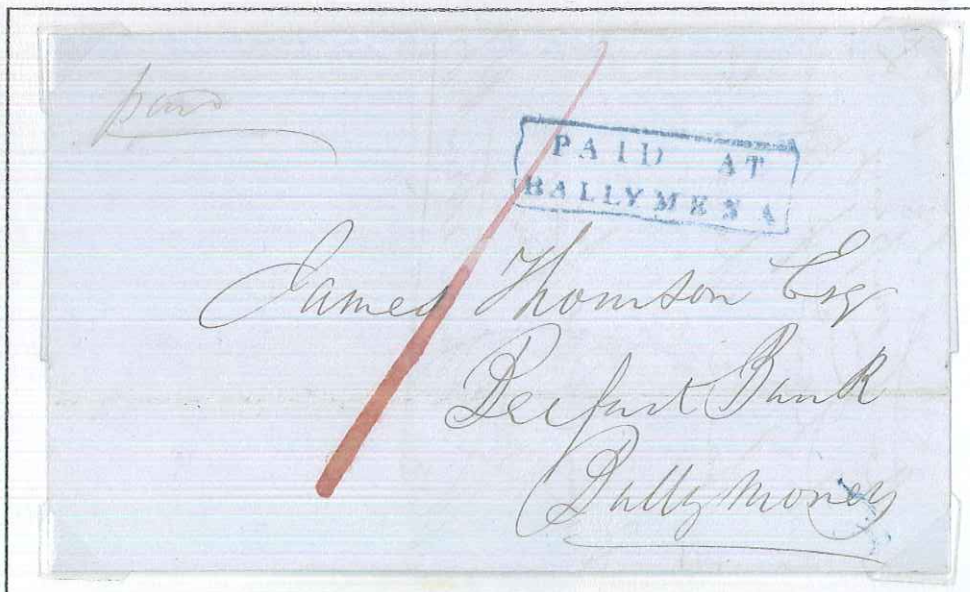 paid
PAID AT
BALLYMENA
James Thomson Esq
Belfast Bank
Ballymoney